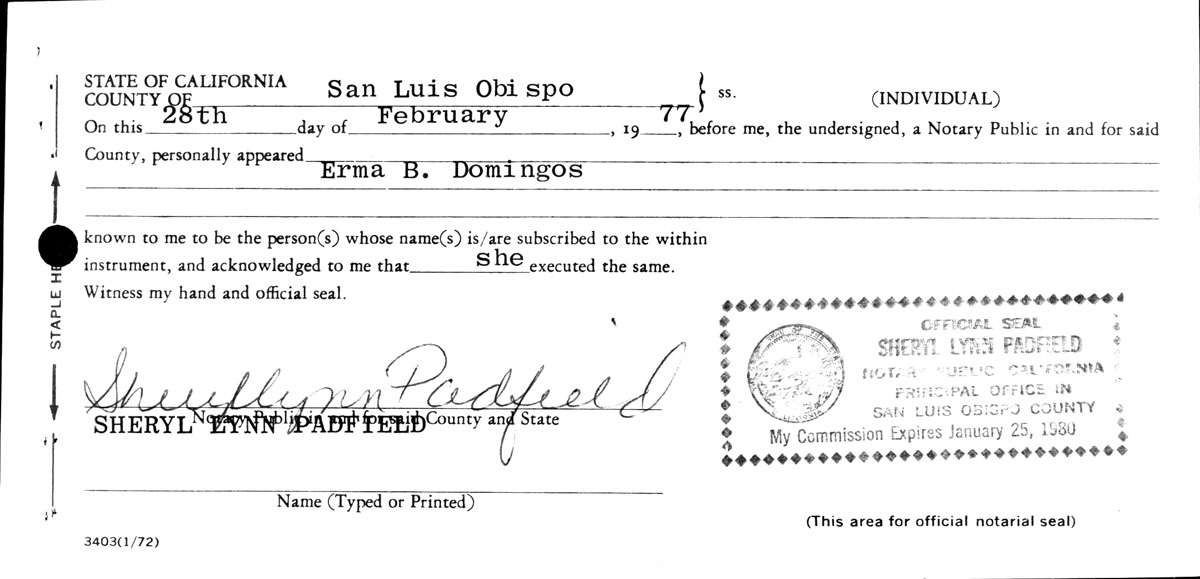 STATE OF CALIFORNIA
COUNTY OF San Luis Obispo } ss. (INDIVIDUAL)
On this 28th day of February, 19 77, before me, the undersigned, a Notary Public in and for said
County, personally appeared
Erma B. Domingos
known to me to be the person(s) whose name(s) is/are subscribed to the within
instrument, and acknowledged to me that she executed the same.
Witness my hand and official seal.
STAPLE HE
Sheryl Lynn Padfield
Notary Public in and for said County and State
SHERYL LYNN PADFIELD
Name (Typed or Printed)
OFFICIAL SEAL
SHERYL LYNN PADFIELD
NOTARY PUBLIC CALIFORNIA
PRINCIPAL OFFICE IN
SAN LUIS OBISPO COUNTY
My Commission Expires January 25, 1980
(This area for official notarial seal)
3403(1/72)